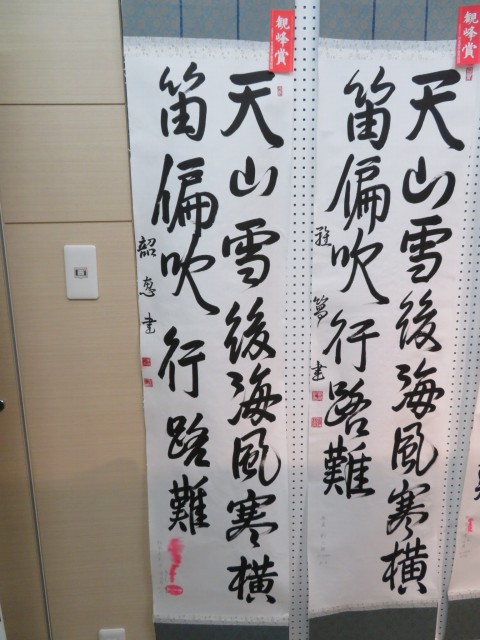 観峰賞
天山雪後海風寒横
笛偏吹行路難
韶恵書
観峰賞
天山雪後海風寒横
笛偏吹行路難